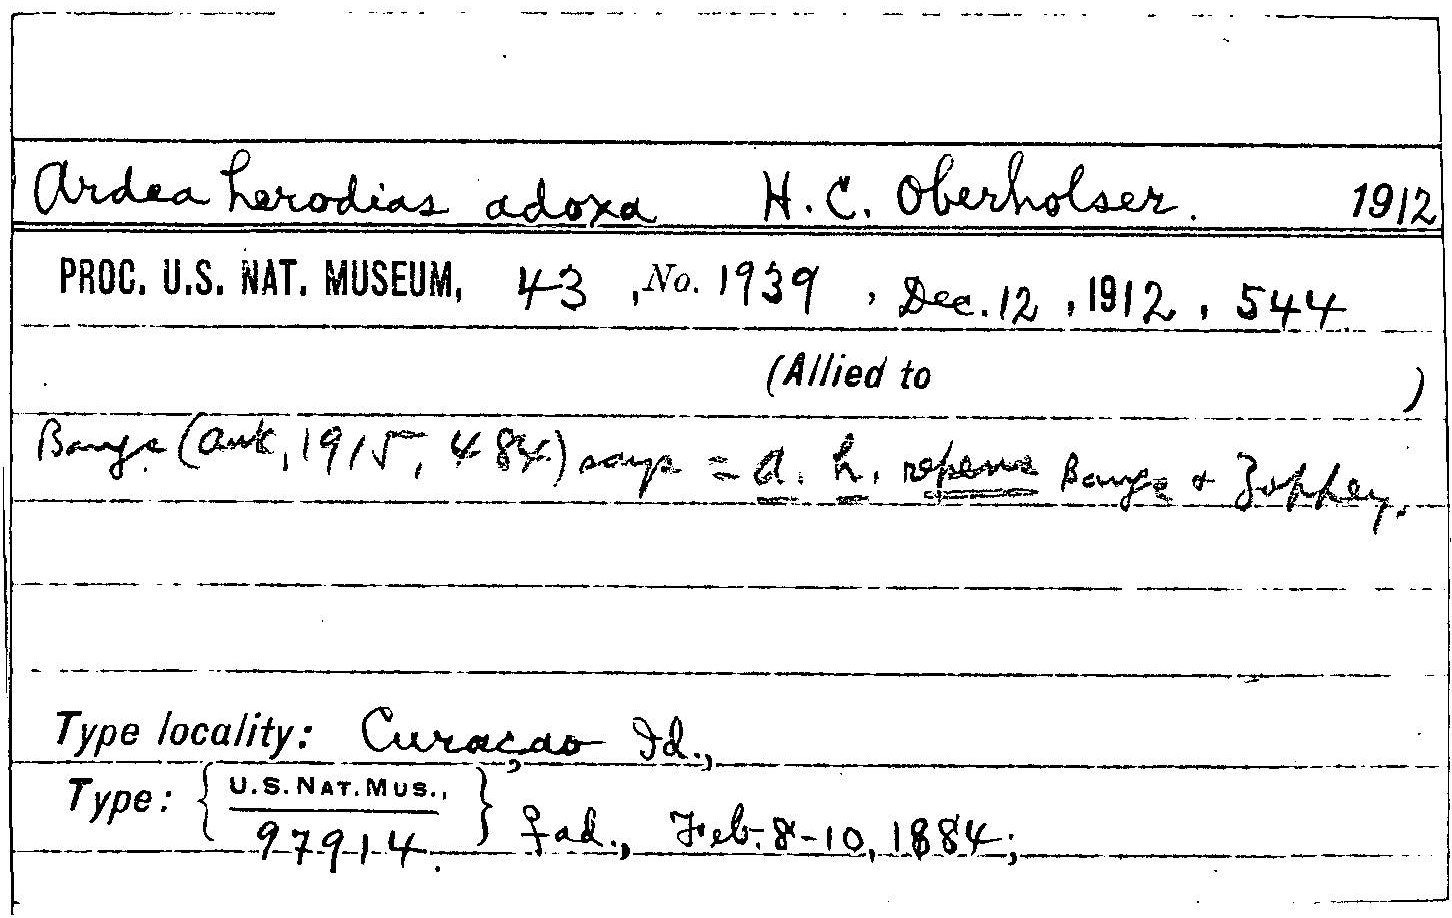 Ardea herodias adoxa H. C. Oberholser. 1912
PROC. U.S. NAT. MUSEUM, 43, No. 1939, Dec. 12, 1912, 544
(Allied to )
Bangs (Auk, 1915, 484) says = A. h. repens Bangs + Zappey.
Type locality: Curaçao Id.,
Type: { U.S. NAT. MUS., } ♀ ad., Feb. 8-10, 1884;
97914.